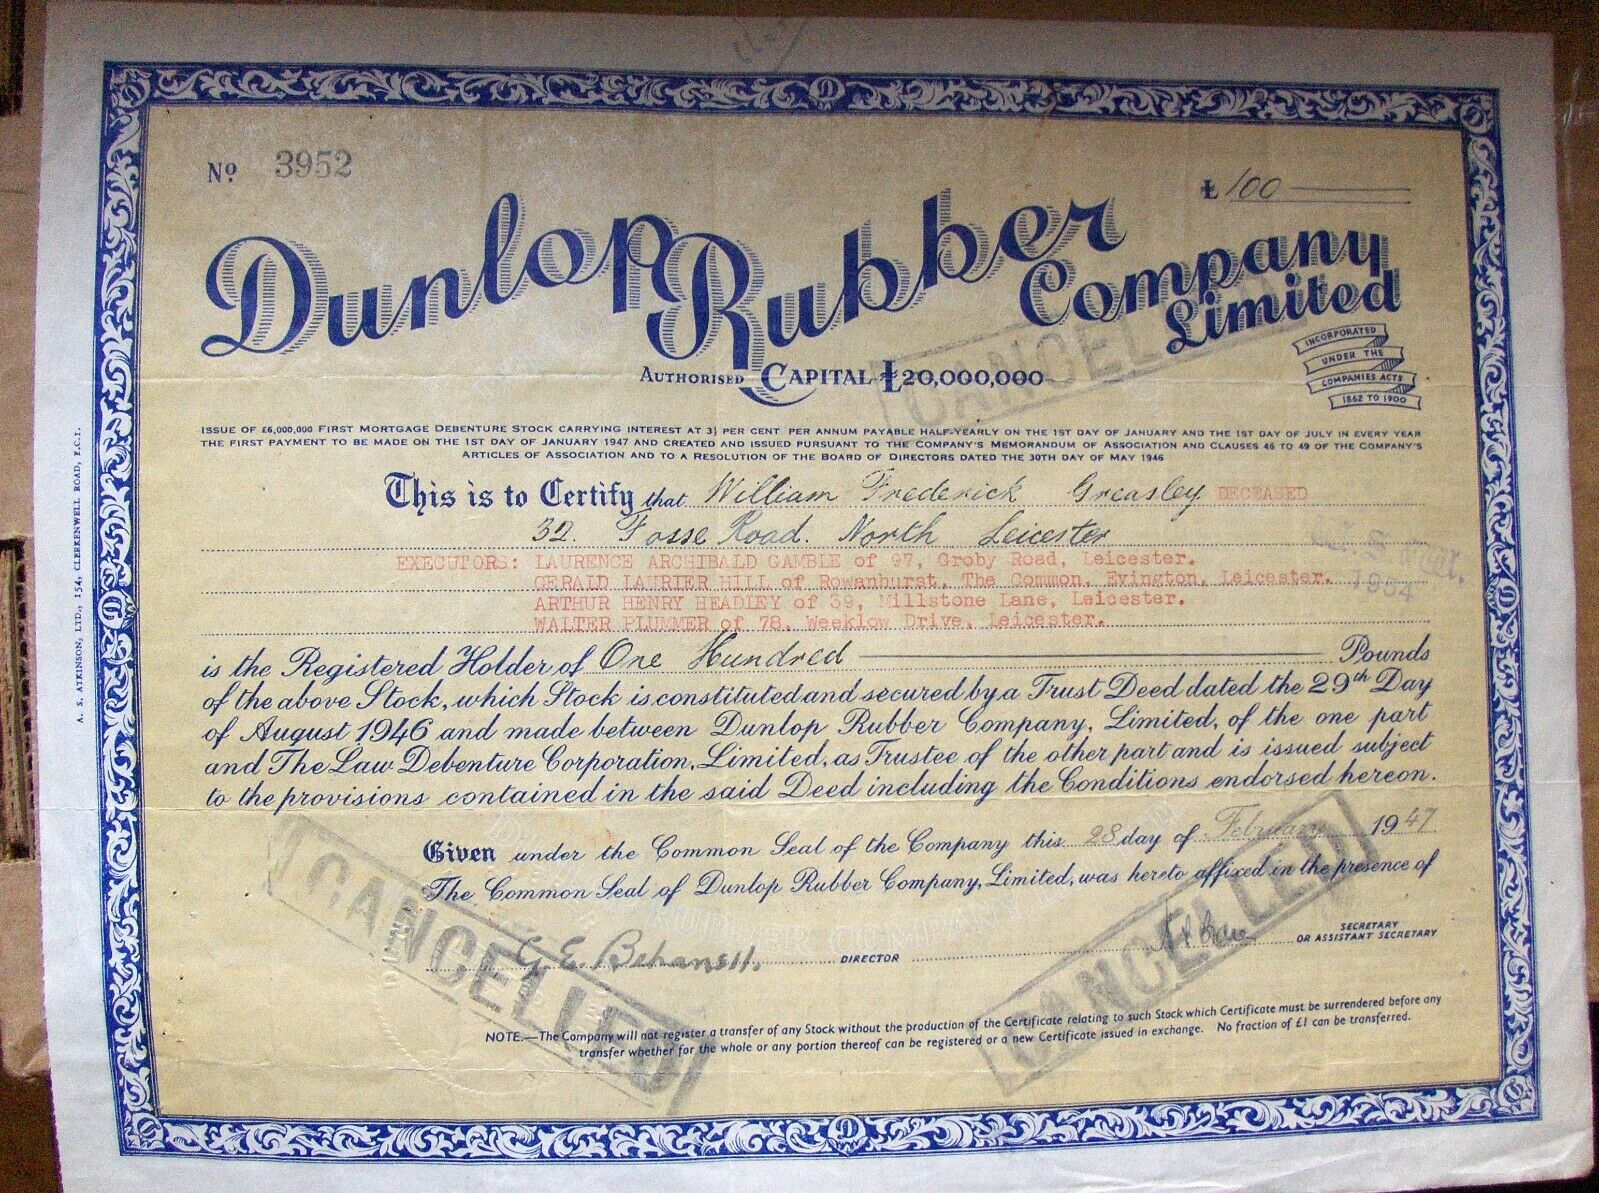 No 3952
£ 100
Dunlop Rubber
Company
Limited
INCORPORATED
UNDER THE
COMPANIES ACTS
1862 TO 1900
AUTHORISED CAPITAL £20,000,000
CANCELLED
ISSUE OF £6,000,000 FIRST MORTGAGE DEBENTURE STOCK CARRYING INTEREST AT 3½ PER CENT. PER ANNUM PAYABLE HALF-YEARLY ON THE 1ST DAY OF JANUARY AND THE 1ST DAY OF JULY IN EVERY YEAR
THE FIRST PAYMENT TO BE MADE ON THE 1ST DAY OF JANUARY 1947 AND CREATED AND ISSUED PURSUANT TO THE COMPANY'S MEMORANDUM OF ASSOCIATION AND CLAUSES 46 TO 49 OF THE COMPANY'S
ARTICLES OF ASSOCIATION AND TO A RESOLUTION OF THE BOARD OF DIRECTORS DATED THE 30TH DAY OF MAY 1946
This is to Certify that William Frederick Greasley DECEASED
32. Fosse Road. North Leicester
EXECUTORS: LAURENCE ARCHIBALD GAMBLE of 97, Groby Road, Leicester.
GERALD LAURIER HILL of Rowanhurst, The Common, Evington, Leicester.
ARTHUR HENRY HEADLEY of 39, Millstone Lane, Leicester.
WALTER PLUMMER of 78, Weeklow Drive, Leicester.
1954
is the Registered Holder of One Hundred Pounds
of the above Stock, which Stock is constituted and secured by a Trust Deed dated the 29th Day
of August 1946 and made between Dunlop Rubber Company, Limited, of the one part
and The Law Debenture Corporation, Limited, as Trustee of the other part and is issued subject
to the provisions contained in the said Deed including the Conditions endorsed hereon.
Given under the Common Seal of the Company this 28 day of February 1947
The Common Seal of Dunlop Rubber Company, Limited, was hereto affixed in the presence of
CANCELLED
CANCELLED
DIRECTOR
SECRETARY
OR ASSISTANT SECRETARY
NOTE.—The Company will not register a transfer of any Stock without the production of the Certificate relating to such Stock which Certificate must be surrendered before any
transfer whether for the whole or any portion thereof can be registered or a new Certificate issued in exchange. No fraction of £1 can be transferred.
A. S. ATKINSON, LTD., 154, CLERKENWELL ROAD, E.C.1.